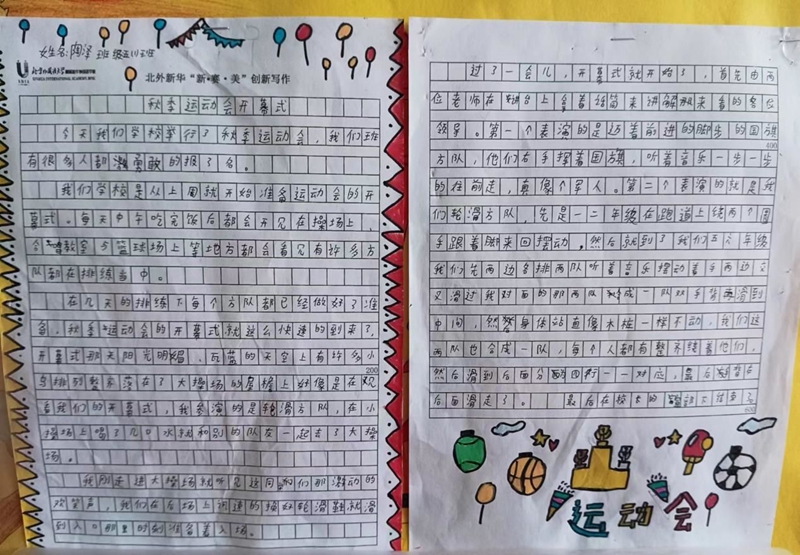 姓名:陶泽 班级五(1)班
北外新华“新·赛·美”创新写作
秋季运动会开幕式
今天我们学校举行了秋季运动会，我们班
有很多人都勇敢的报了名。
我们学校是从上周就开始准备运动会的开
幕式。每天中午吃完饭后都会开见在操场上、
教室与篮球场上等地方都会看见有许多方
队都在排练当中。
在几天的排练下每个方队都已经做好了准
备。秋季运动会的开幕式就这么快速的到来了。
开幕式那天阳光明媚，瓦蓝的天空上有许多小
鸟排列整齐落在了大操场的屋檐上好像是在观
看我们的开幕式，我参演的是轮滑方队，在小
操场上喝了几口水就和别的队在一起去了大操
场。
200
我刚走进大操场就听见这同学们那激动的
欢笑声，我们在台场上迅速的换好轮滑鞋就滑
到入口那里的刻准备着入场。
过了一会儿，开幕式就开始了，首先由两
位老师在讲台上拿着话筒来讲解致来着的各位
领导。第一个表演的是迈着前进的脚步的国旗
400
方队，他们右手挥着国旗，听着音乐一步一步
的往前走，真像个军人。第二个表演的就是我
们轮滑方队，先是一二年级在跑道上绕两个圈
手跟着脚来回摆动。然后就到了我们五六年级
我们先两边各排两队听着音乐摆动着手两边交
叉滑过我对面的那两队 成一队双手背 滑到
中间，然 身体站直像木桩一样不动，我们这
两队也合成一队，每个人都有整不绕着他们，
然后滑到后面分 一一对应，最后 背着
后面滑走了。 最后在校长的 下结束了
600
运动会